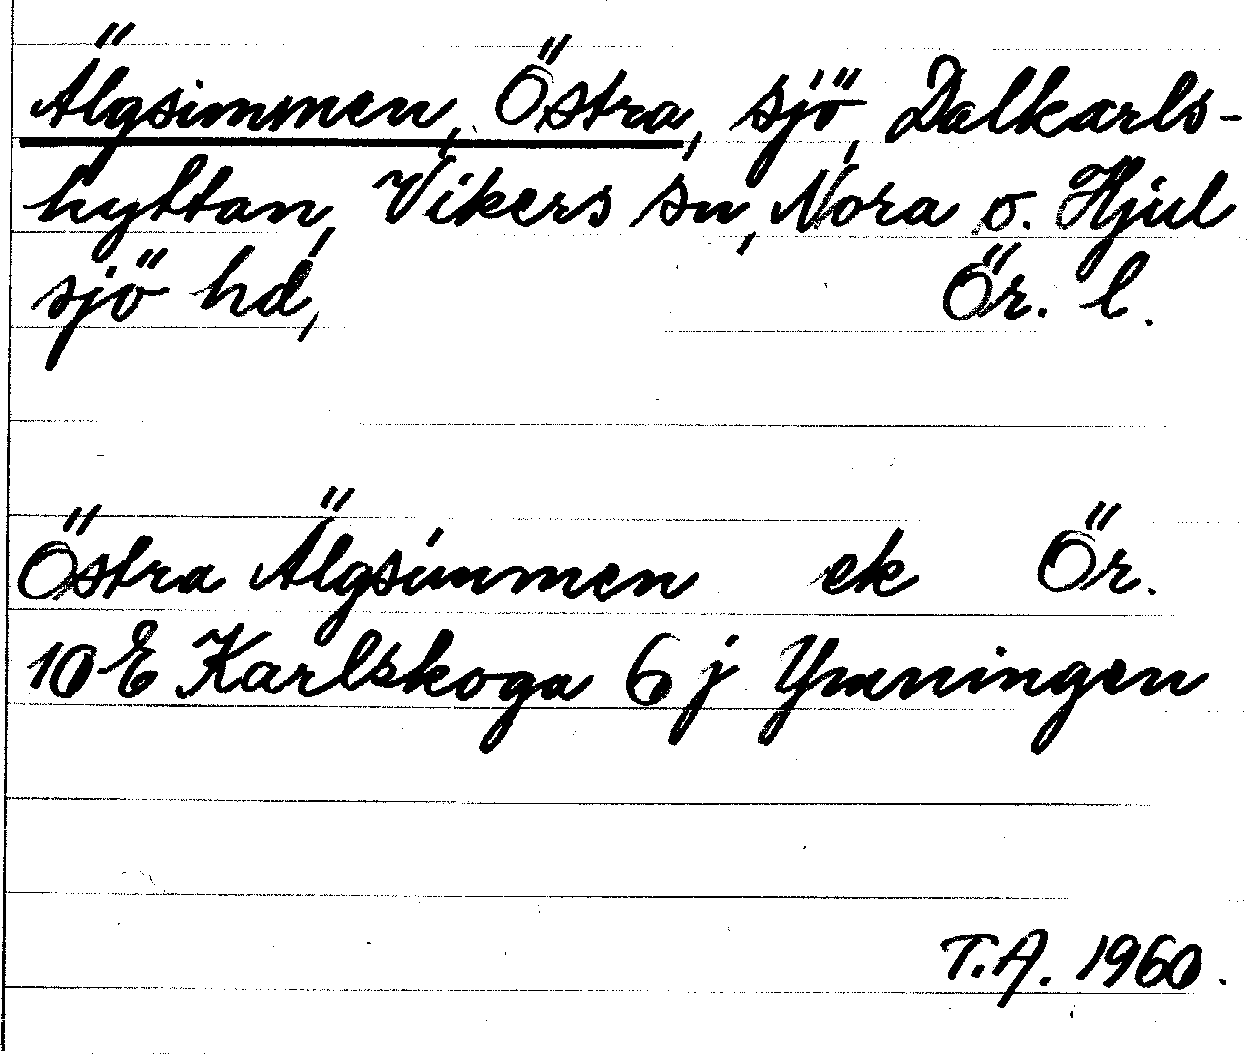 Älgsimmen, Östra, sjö, Dalkarls-
hyttan, Vikers sn, Nora o. Hjul
sjö hd, Ör. l.
Östra Älgsimmen ek Ör.
10 E Karlskoga 6 j Ymningen
T.A. 1960.